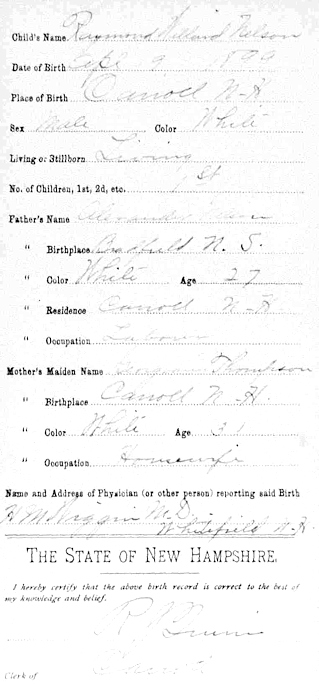 Child's Name Raymond Willard Nelson
Date of Birth Sept 9 1899
Place of Birth Carroll N-H
Sex Male Color White
Living or Stillborn Living
No. of Children, 1st, 2d, etc. 1st
Father's Name Alexander
" Birthplace N. S.
" Color White Age 27
" Residence Carroll N-H
" Occupation Laborer
Mother's Maiden Name Thompson
" Birthplace Carroll N-H.
" Color White Age 31
" Occupation Housewife
Name and Address of Physician (or other person) reporting said Birth
H M Wiggin M.D. Whitefield N-H
THE STATE OF NEW HAMPSHIRE.
I hereby certify that the above birth record is correct to the best of
my knowledge and belief.
Clerk of